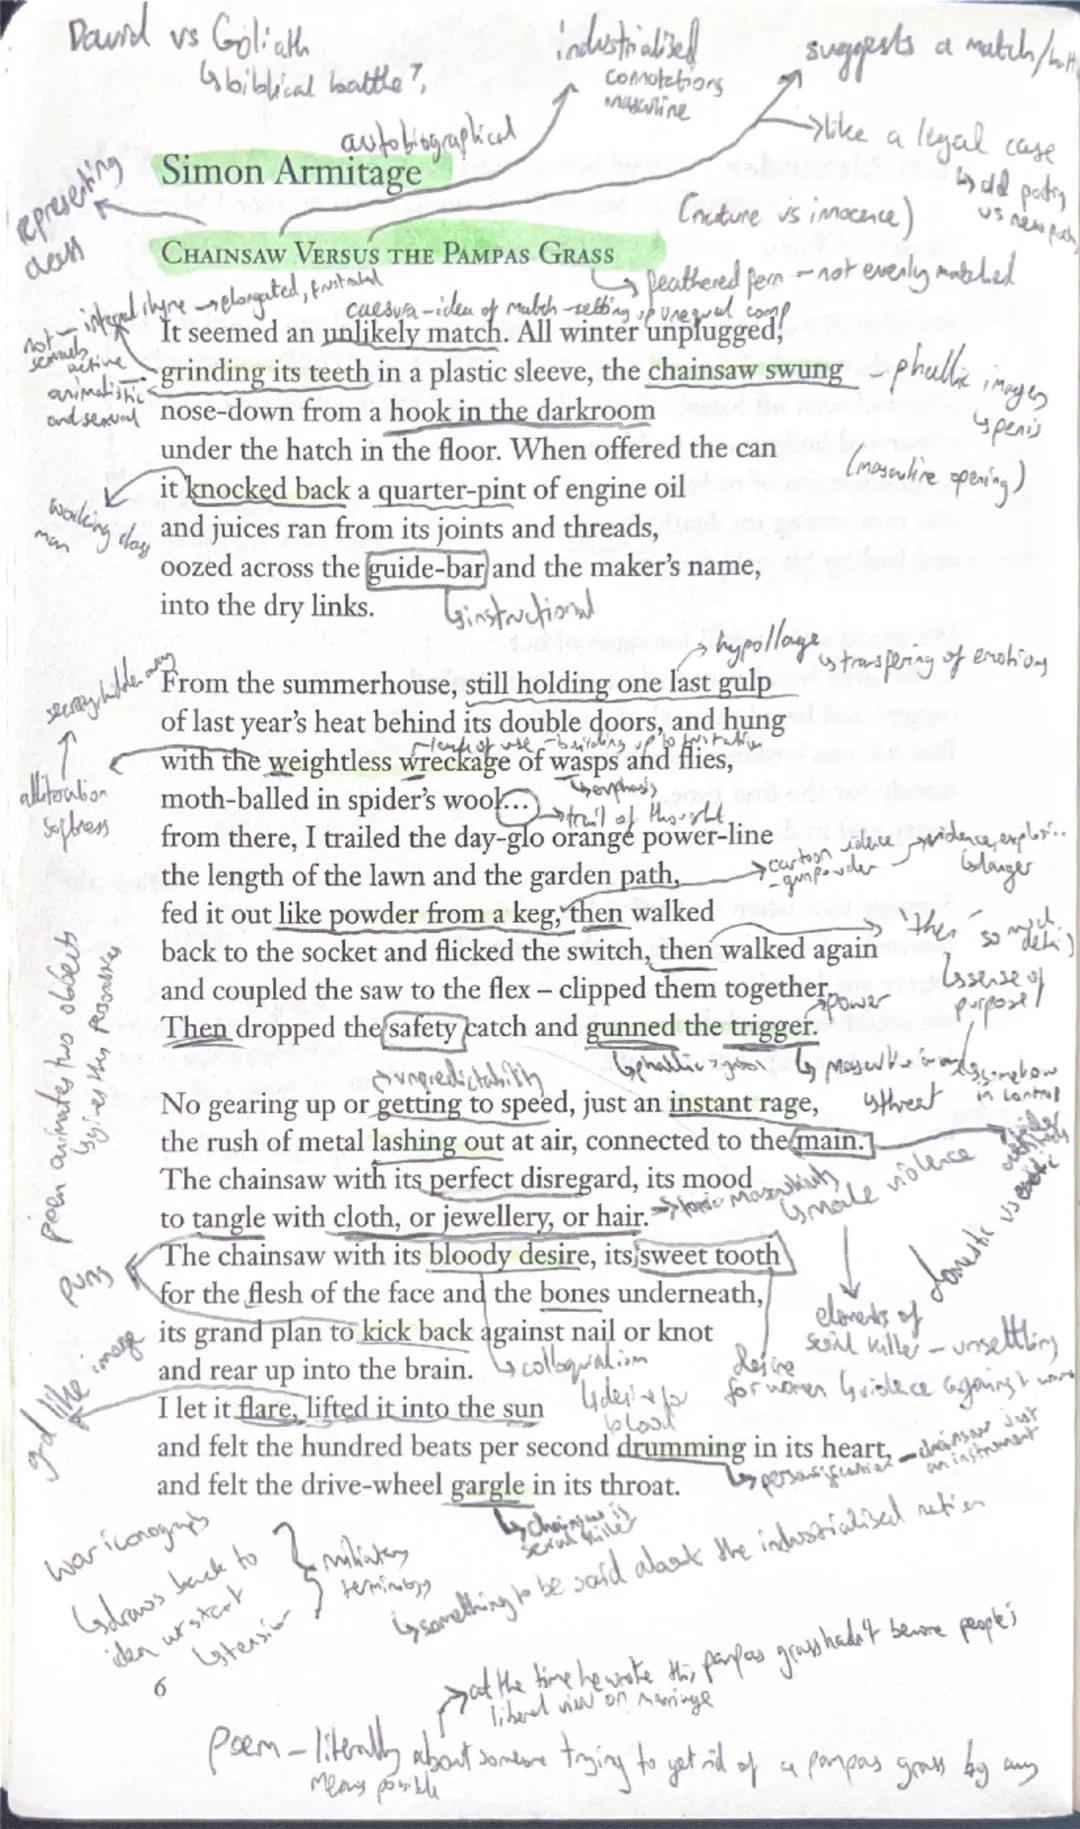 David vs Goliath
↳ biblical battle?
industrialised
connotations
masculine
suggests a match/
→ like a legal case
↳ old poetry
vs new
autobiographical
Simon Armitage
representing
death
(nature is innocence)
CHAINSAW VERSUS THE PAMPAS GRASS
↳ feathered fern – not evenly matched
internal rhyme → elongated, frustrated
caesura – idea of match – setting up unequal comp
It seemed an unlikely match. All winter unplugged,
grinding its teeth in a plastic sleeve, the chainsaw swung
nose-down from a hook in the darkroom
under the hatch in the floor. When offered the can
it knocked back a quarter-pint of engine oil
and juices ran from its joints and threads,
oozed across the guide-bar and the maker's name,
into the dry links.
not
active
animalistic
and sexual
– phallic images
↳ penis
(masculine opening)
working class
man
↳ instructional
→ hypollage
↳ transfering of emotions
From the summerhouse, still holding one last gulp
of last year's heat behind its double doors, and hung
with the weightless wreckage of wasps and flies,
moth-balled in spider's wool...
from there, I trailed the day-glo orange power-line
the length of the lawn and the garden path,
fed it out like powder from a keg, then walked
back to the socket and flicked the switch, then walked again
and coupled the saw to the flex – clipped them together.
Then dropped the safety catch and gunned the trigger.
alliteration
softness
↳ emphasis
→ trail of thought
→ cartoon violence
– gunpowder
↳ danger
'then' so much detail
↳ sense of
purpose
→ power
↳ phallic symbol
↳ threat
somehow
in control
poem animates two objects
↳ gives them personalities
unpredictability
No gearing up or getting to speed, just an instant rage,
the rush of metal lashing out at air, connected to the main.
The chainsaw with its perfect disregard, its mood
to tangle with cloth, or jewellery, or hair.
The chainsaw with its bloody desire, its sweet tooth
for the flesh of the face and the bones underneath,
its grand plan to kick back against nail or knot
and rear up into the brain.
I let it flare, lifted it into the sun
and felt the hundred beats per second drumming in its heart,
and felt the drive-wheel gargle in its throat.
→ toxic masculinity
↳ male violence
domestic vs exotic
puns
elements of
serial killer – unsettling
↳ colloquialism
↳ desire for
blood
desire
for women ↳ violence against women
god like image
↳ personification – chainsaw just
an instrument
↳ chainsaw is
serial killer
war iconography
↳ draws back to
idea at start
↳ tension
military
terminology
↳ something to be said about the industrialised nation
6
→ at the time he wrote this, pampas grass hadn't become people's
liberal view on marriage
Poem – literally about someone trying to get rid of a pampas grass by any
means possible